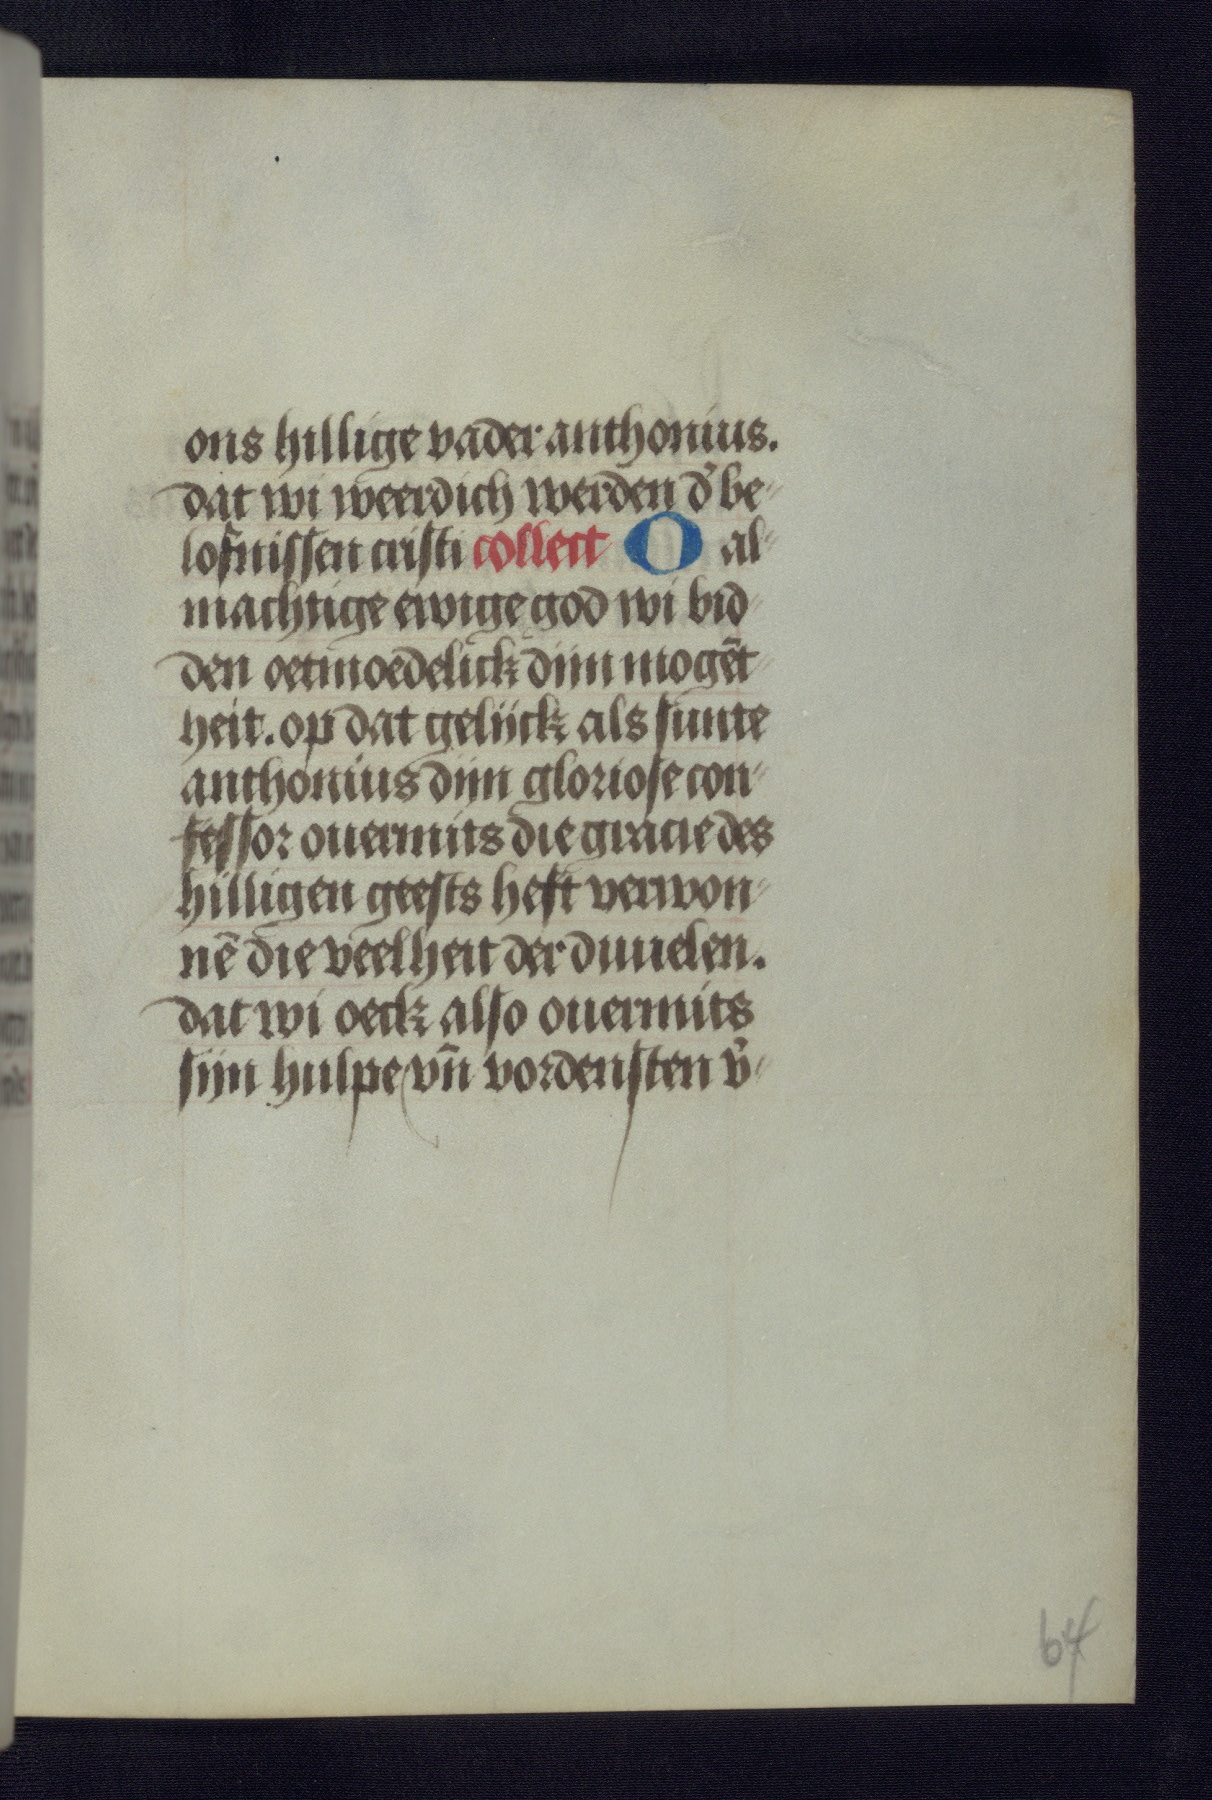 ons hillige vader anthonius.
dat wi weerdich werden d̉ be-
lofnissen cristi collect O al-
machtige ewige god wi bid-
den oetmoedelick dijn mogēt-
heit. op dat gelijck als sunte
anthonius dijn gloriose con-
fessor ouermits die gracie des
hilligen geests heft verwon-
nē die veelheit der duuelen.
dat wi oeck also ouermits
sijn hulpe vn̄ vordensten v̉-
64